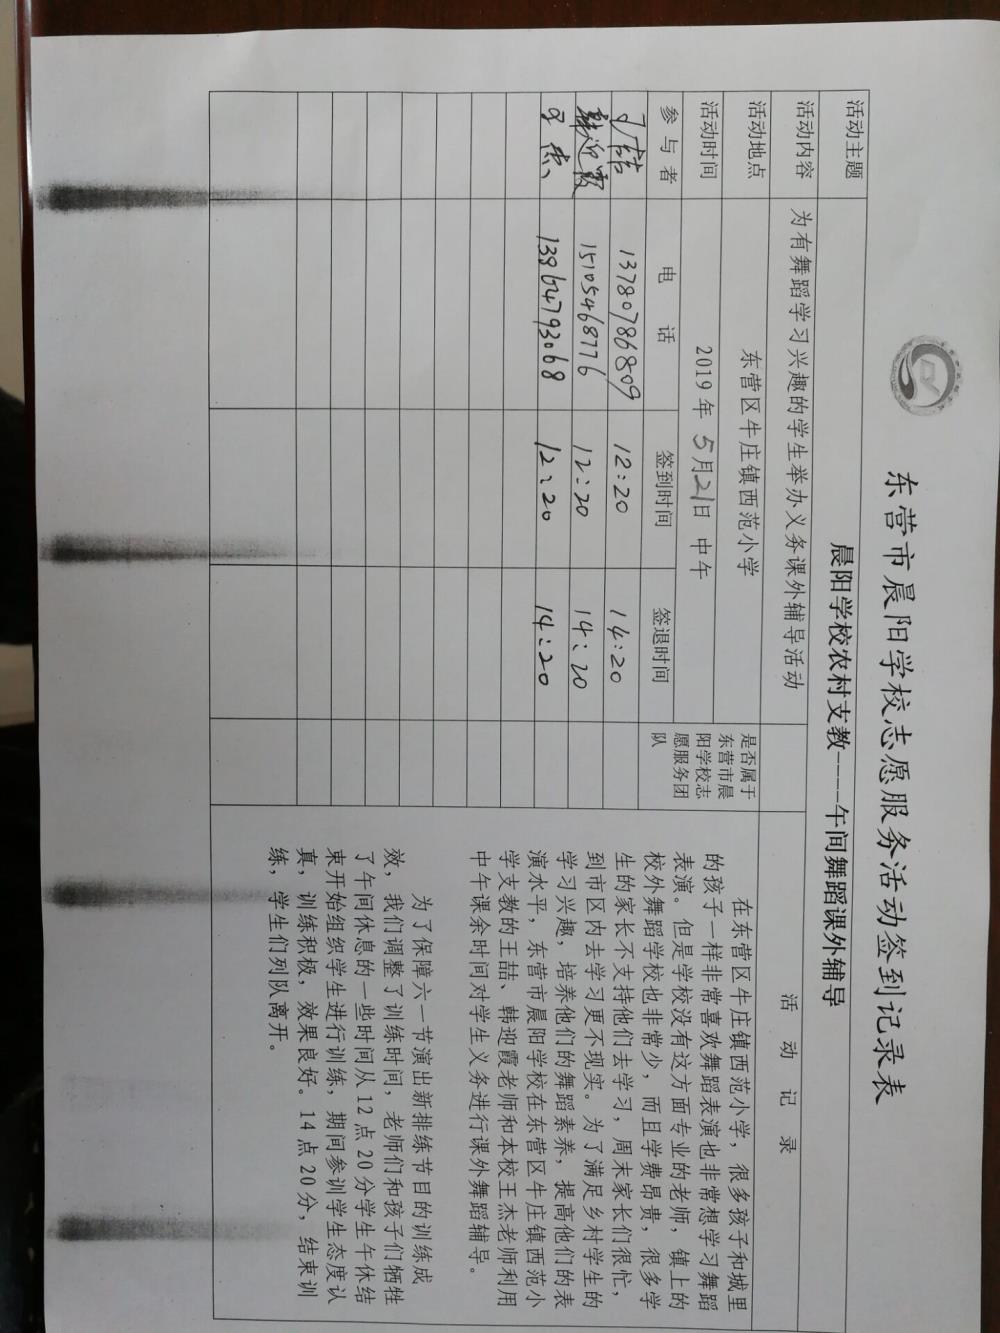 东营市晨阳学校志愿服务活动签到记录表
活动主题 晨阳学校农村支教----午间舞蹈课外辅导
活动内容 为有舞蹈学习兴趣的学生举办义务课外辅导活动
活动地点 东营区牛庄镇西范小学
活动时间 2019年5月21日 中午
是否属于
东营市晨
阳学校志
愿服务团
队
活动记录
参与者 电话 签到时间 签退时间
王喆 13780786809 12:20 14:20
韩迎霞 15105468776 12:20 14:20
王杰 13964793068 12:20 14:20
在东营区牛庄镇西范小学，很多孩子和城里
的孩子一样非常喜欢舞蹈表演也非常想学习舞蹈
表演。但是学校没有这方面专业的老师，镇上的
校外舞蹈学校也非常少，而且学费昂贵，很多学
生的家长不支持他们去学习，周末家长们很忙，
到市区内去学习更不现实。为了满足乡村学生的
学习兴趣，培养他们的舞蹈素养，提高他们的表
演水平，东营市晨阳学校在东营区牛庄镇西范小
学支教的王喆、韩迎霞老师和本校王杰老师利用
中午课余时间对学生义务进行课外舞蹈辅导。
为了保障六一节演出新排练节目的训练成
效，我们调整了训练时间，老师们和孩子们牺牲
了午间休息的一些时间从12点20分学生午休结
束开始组织学生进行训练，期间参训学生态度认
真，训练积极，效果良好。14点20分，结束训
练，学生们列队离开。